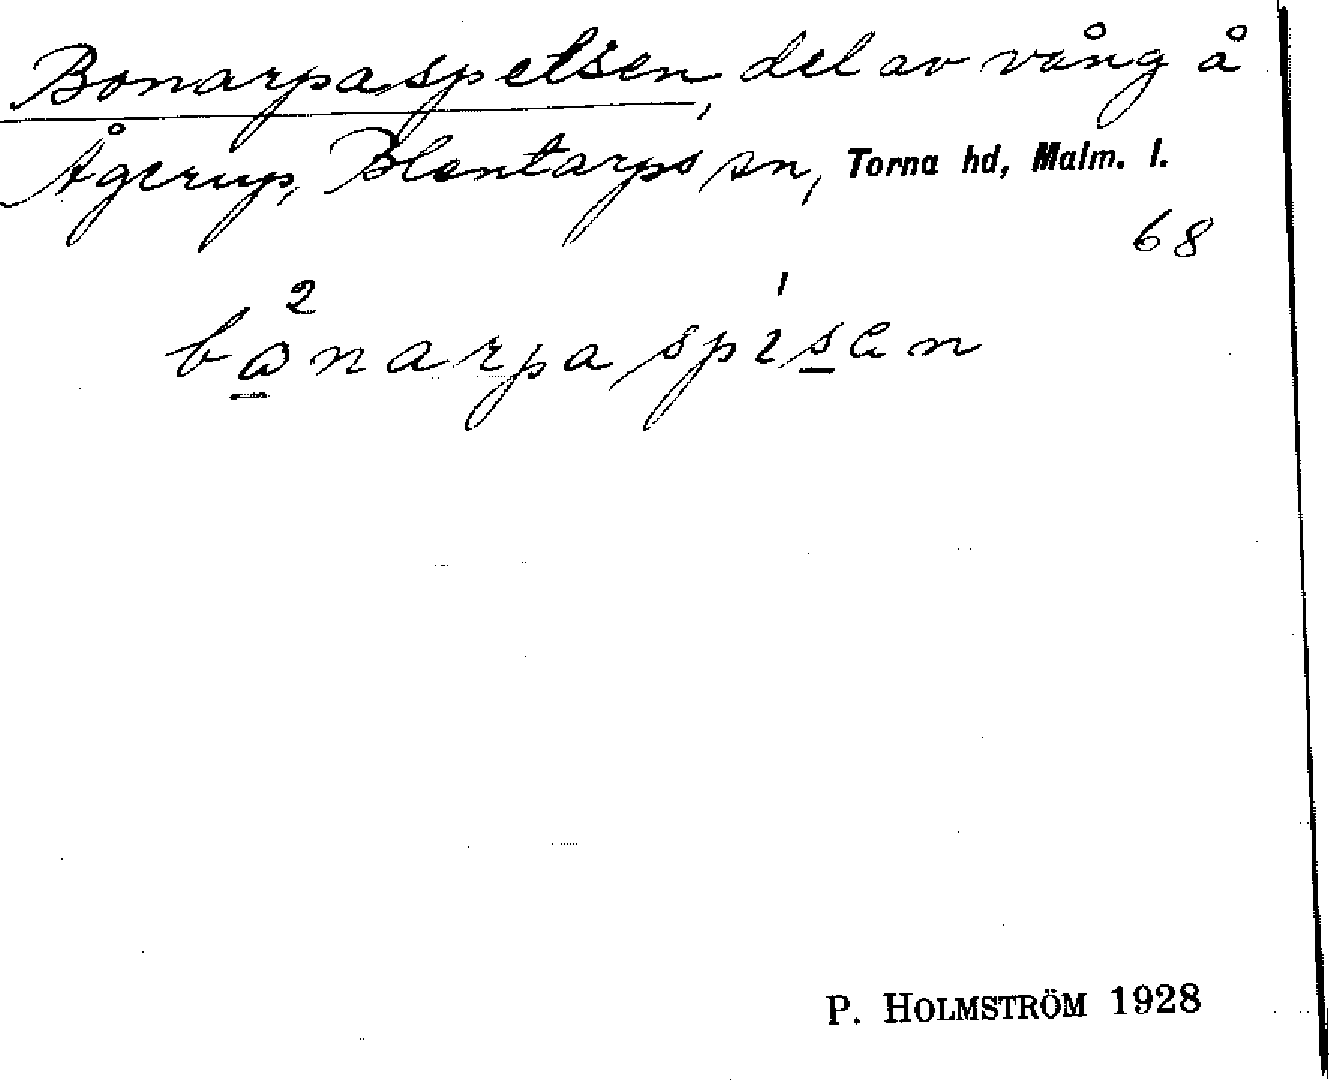 Bonarpaspelsen, del av vång å
Ågerup, Blentarps sn, Torna hd, Malm. l.
68
bo²narpaspi¹sen
P. HOLMSTRÖM 1928